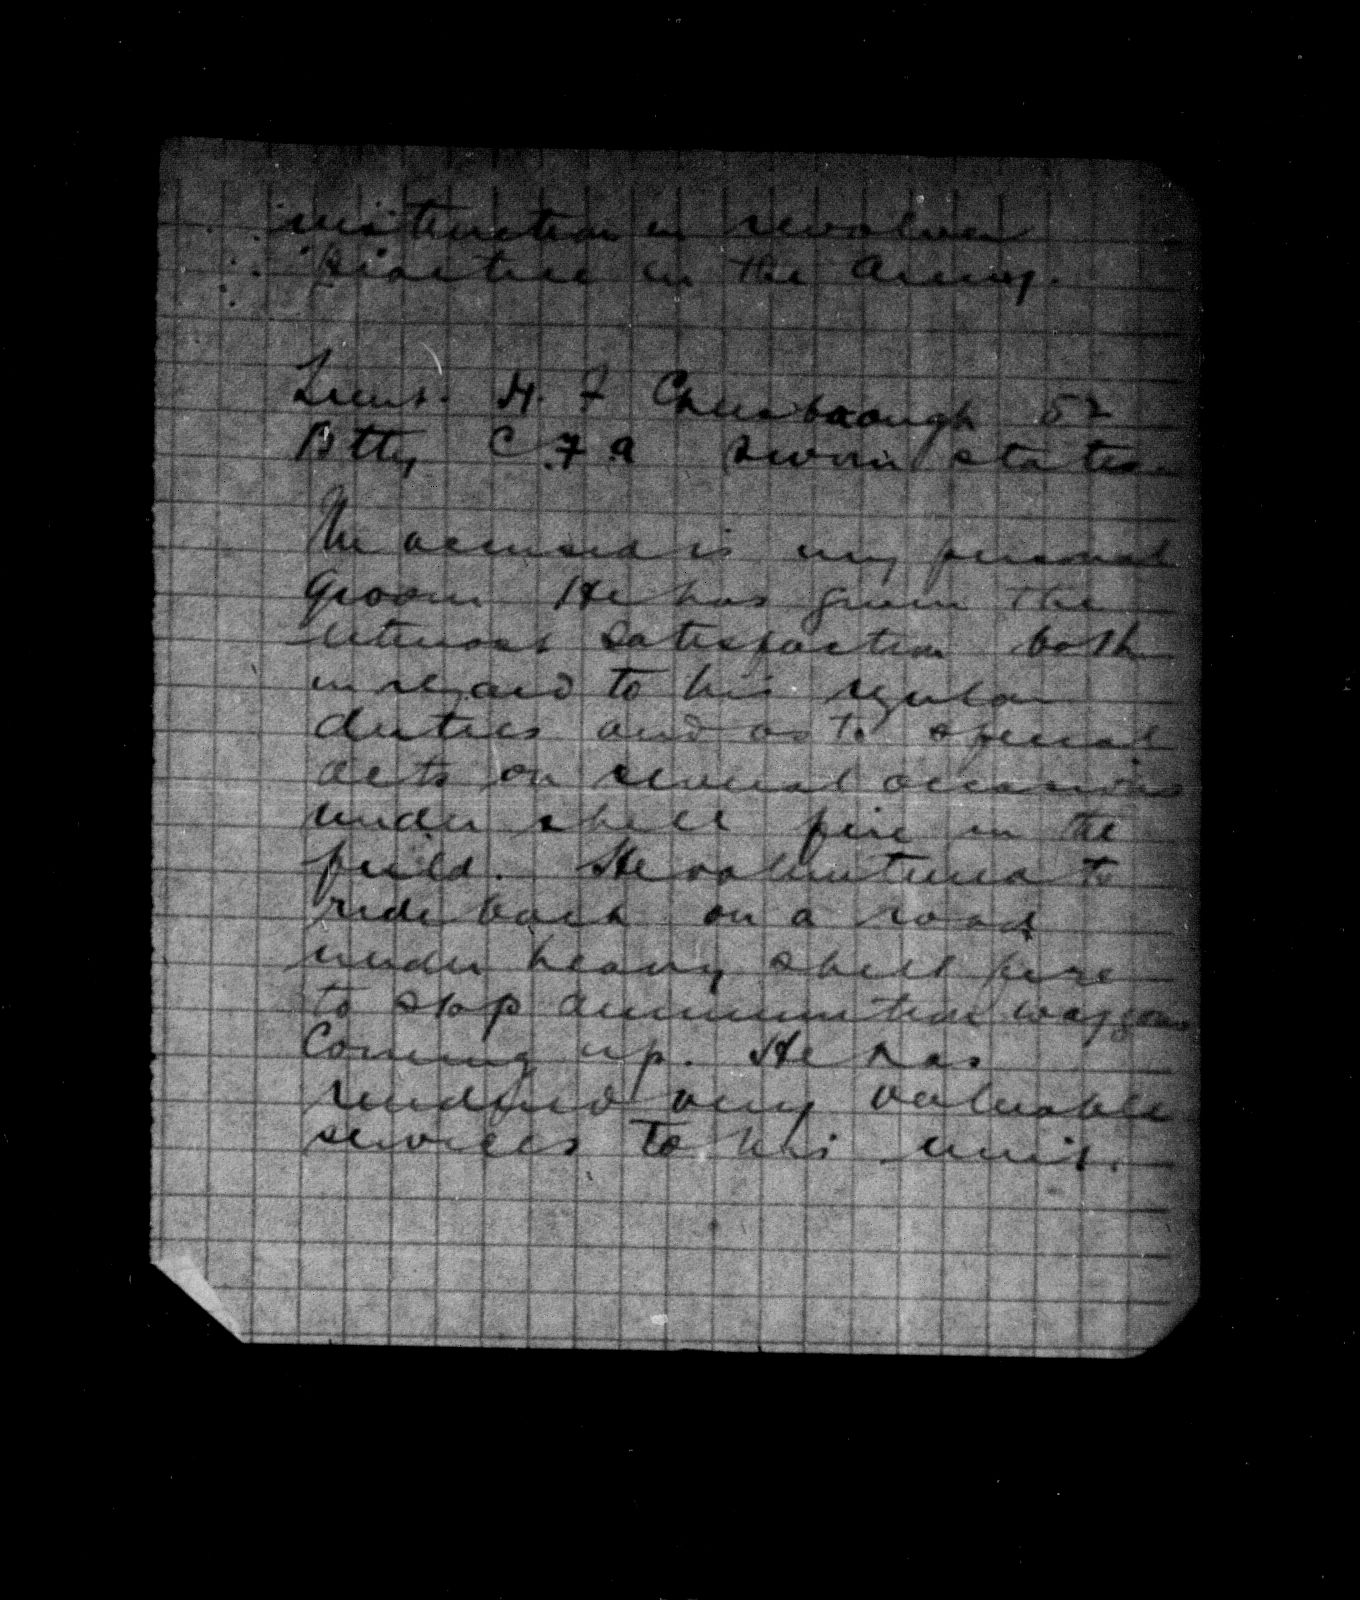 instruction in revolver
practice in the Army.
Lieut. H. F Chesbrough 52
Btty C.F.A sworn states.
The accused is my personal
groom He has given the
utmost satisfaction both
in regard to his regular
duties and as to special
acts on several occasions
under shell fire in the
field. He volunteered to
ride back on a road
under heavy shell fire
to stop ammunition waggons
Coming up. He has
rendered very valuable
services to his unit.